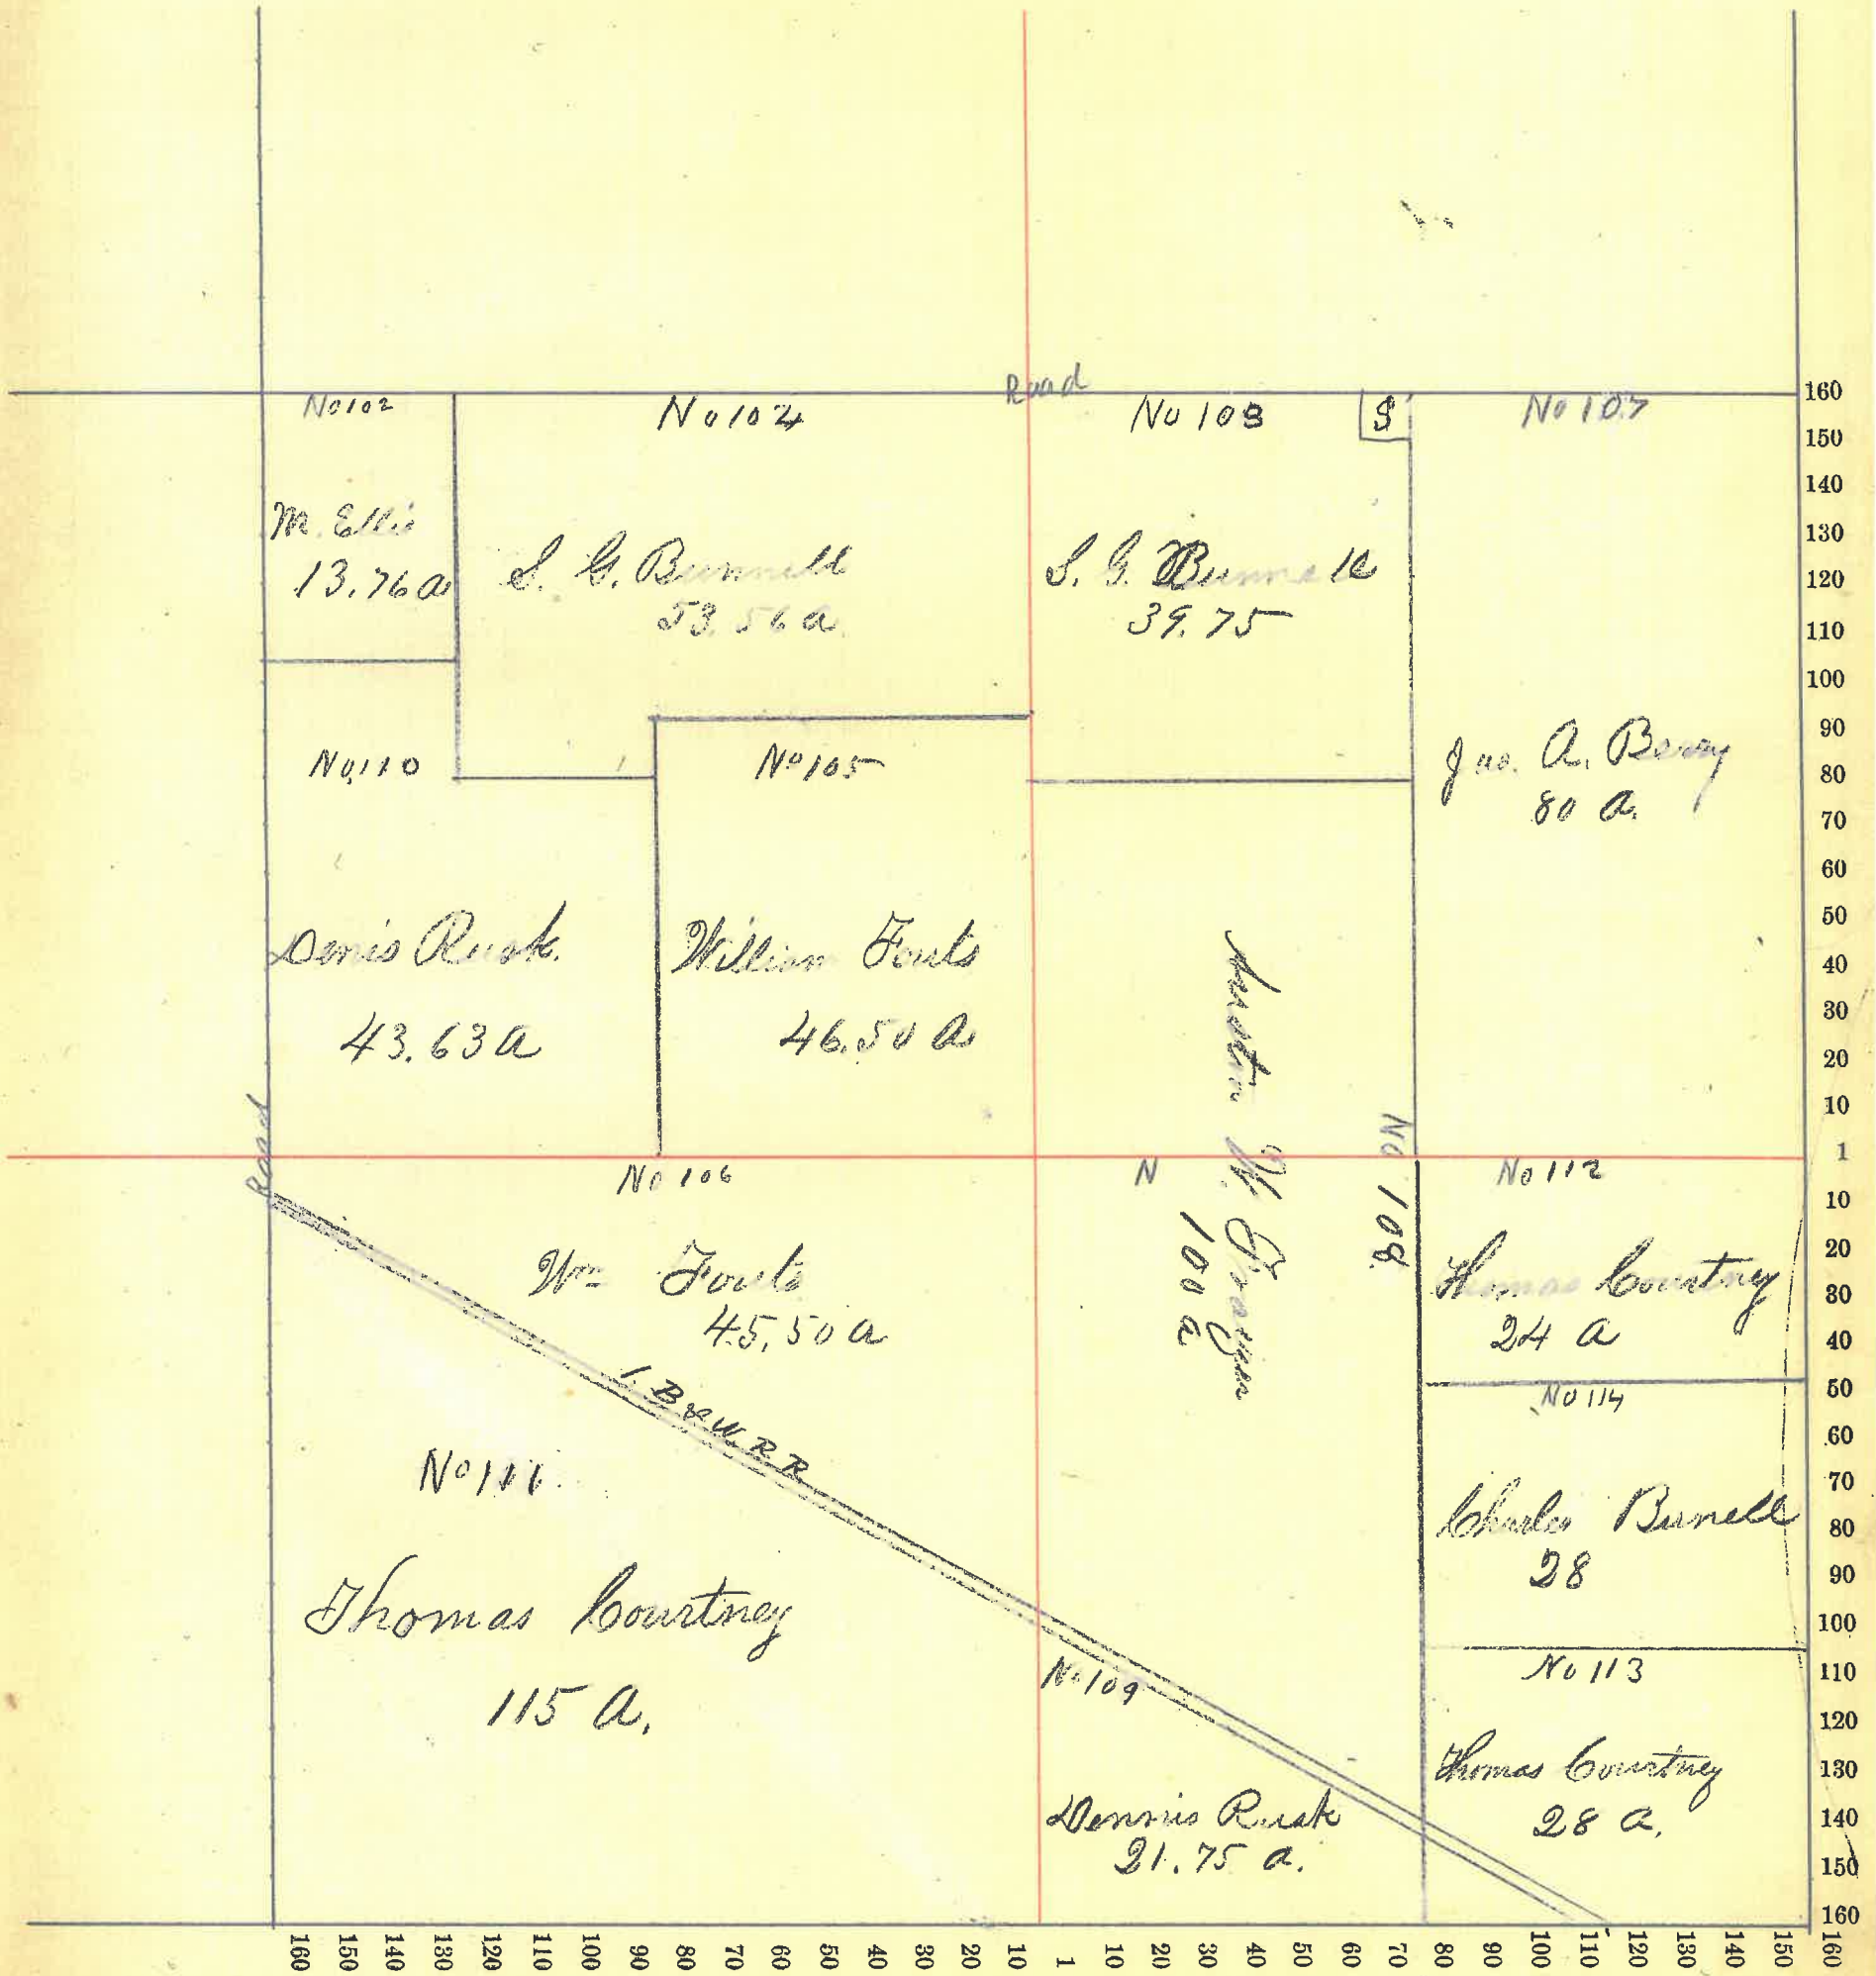 Road
No 102
No 104
No 103
S
No 107
M. Ellis
13.76 a
S. G. Bunnell
53.56 a
S. G. Bunnell
39.75
Jno. A. Berry
80 A.
No 110
No 105
Denis Rusk.
43.63 a
William Fouts
46.50 A
Road
No 106
N
No 108.
100 a
No 112
Wm Fouts
45.50 a
Thomas Courtney
24 a
I. B & W. R R
No 114
No 111.
Charles Bunell
28
Thomas Courtney
115 A.
No 109
No 113
Dennis Rusk
21.75 a.
Thomas Courtney
28 a.
160
150
140
130
120
110
100
90
80
70
60
50
40
30
20
10
1
10
20
30
40
50
60
70
80
90
100
110
120
130
140
150
160
160 150 140 130 120 110 100 90 80 70 60 50 40 30 20 10 1 10 20 30 40 50 60 70 80 90 100 110 120 130 140 150 160